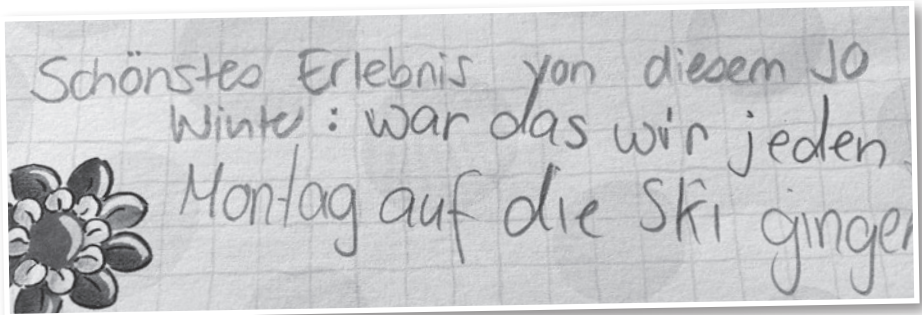 Schönstes Erlebnis von diesem JO
Winter: war das wir jeden
Montag auf die Ski gingen